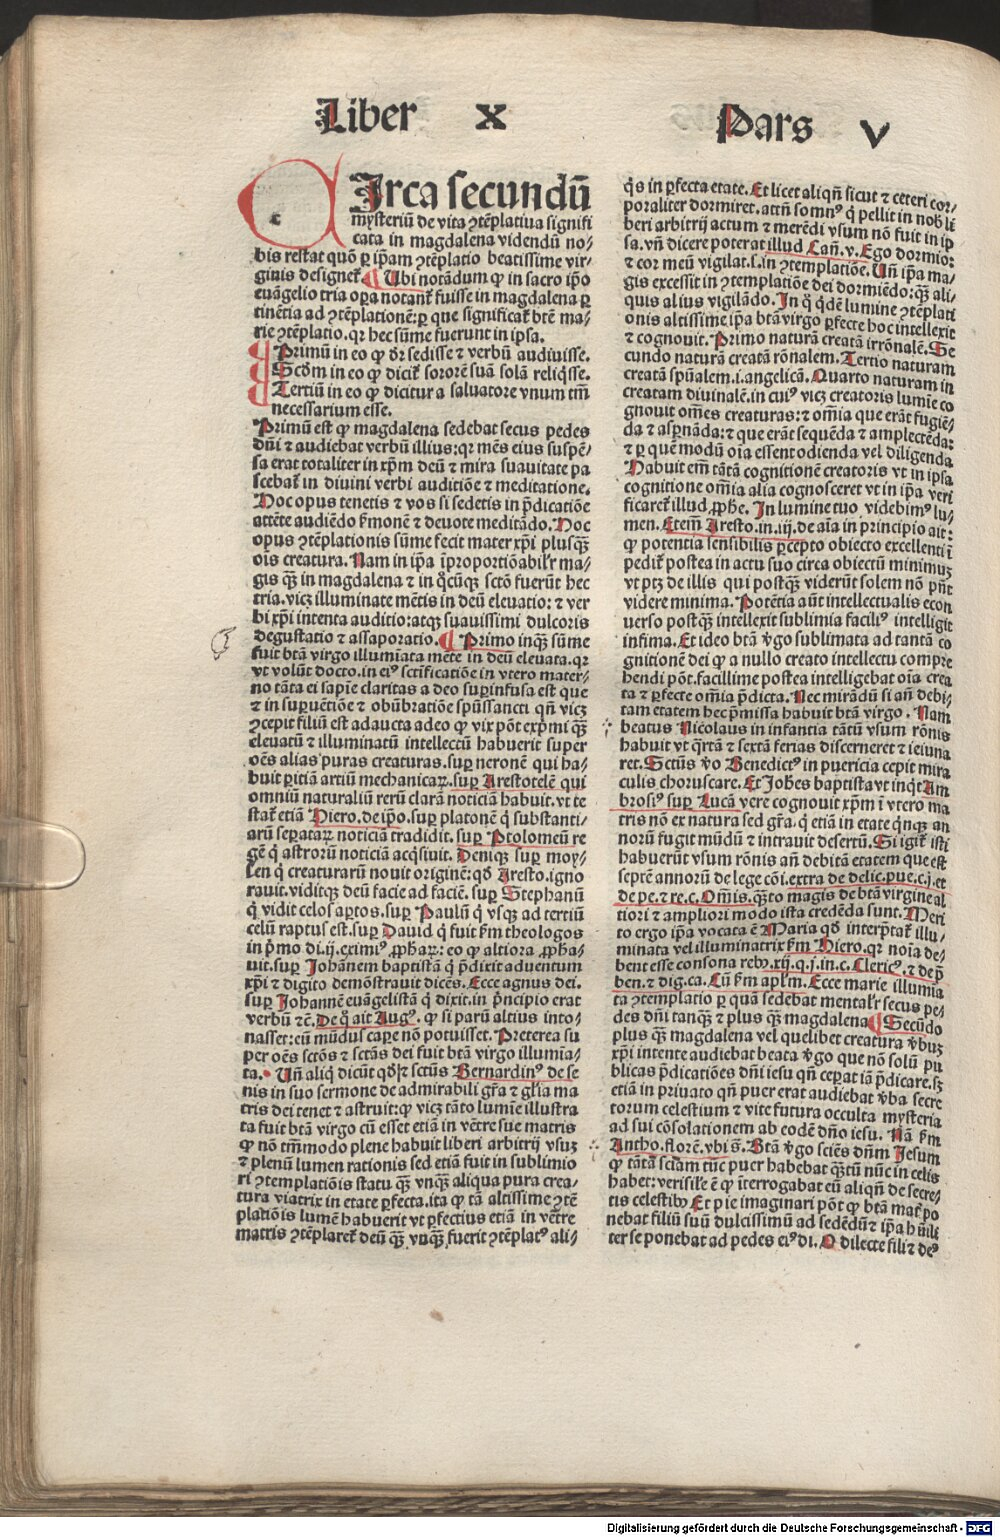 Liber X Pars V
CIrca secundū
mysteriū de vita ꝯtēplatiua signifi
cata in magdalena videndū no⸗
bis restat quō ꝑ ip̄am ꝯtēplatio beatissime vir⸗
ginis designet̄. ¶ Ubi notādum ꝙ in sacro ip̄o
euāgelio tria oꝑa notant̄ fuisse in magdalena ꝑ
tinētia ad ꝯtēplationē: ꝑ que significat̄ btē ma⸗
rie ꝯtēplatio. qr hec sūme fuerunt in ipsa.
¶ Primū in eo ꝙ dr̄ sedisse ⁊ verbū audiuisse.
¶ Scd̄m in eo ꝙ dicit̄ sororē suā solā reliqsse.
¶ Tertiū in eo ꝙ dicitur a saluatore vnum tm̄
necessarium esse.
Primū est ꝙ magdalena sedebat secus pedes
dn̄i ⁊ audiebat verbū illius: qr mēs eius suspē⸗
sa erat totaliter in xp̄m deū ⁊ mira suauitate pa
scebat̄ in diuini verbi auditiōe ⁊ meditatione.
Hoc opus tenetis ⁊ vos si sedetis in p̄dicatiōe
attēte audiēdo ẜmonē ⁊ deuote meditādo. Hoc
opus ꝯtēplationis sūme fecit mater xp̄i plusqꝫ
oīs creatura. Nam in ip̄a īproportiōabilr̄ ma⸗
gis qꝫ in magdalena ⁊ in q̊cūqꝫ sctō fuerūt hec
tria. vicꝫ illuminate mētis in deū eleuatio: ⁊ ver
bi xp̄i intenta auditio: atqꝫ suauissimi dulcoris
degustatio ⁊ assaporatio. ¶ Primo inqꝫ sūme
fuit btā virgo illumīata mēte in deū eleuata. qr
vt volūt docto. in eiꝰ sctificatiōe in vtero mater⸗
no tāta ei sapīe claritas a deo suꝑinfusa est que
⁊ in suꝑuētiōe ⁊ obūbratiōe spūssancti qn̄ vicꝫ
ꝯcepit filiū est adaucta adeo ꝙ vix pōt exp̄mi qꝫ
eleuatū ⁊ illuminatū intellectū habuerit super
oēs alias puras creaturas. suꝑ neronē qui ha⸗
buit ꝑitiā artiū mechanicaꝝ. suꝑ Arestotelē qui
omniū naturaliū rerū clarā noticiā habuit. vt te
stat̄ etiā Hiero. de ip̄o. suꝑ platonē q̇ substanti⸗
arū seꝑataꝝ noticiā tradidit. suꝑ Ptolomeū re
gē q̇ astrorū noticiā acqsiuit. Deniqꝫ suꝑ moy⸗
sen q̇ creaturarū nouit originē: qd̄ Aresto. igno
rauit. viditqꝫ deū facie ad faciē. suꝑ Stephanū
q̇ vidit celos aꝑtos. suꝑ Paulū q̇ vsqꝫ ad tertiū
celū raptus est. suꝑ Dauid q̇ fuit ẜm theologos
in p̄mo di. ij. eximiꝰ ꝓphaꝝ: eo ꝙ altiora ꝓpha⸗
uit. suꝑ Johānem baptistā q̇ p̄dixit aduentum
xp̄i ⁊ digito demōstrauit dicēs. Ecce agnus dei.
suꝑ Johannē euāgelistā q̇ dixit. in p̄ncipio erat
verbū ⁊c̄. De q̊ ait Augꝰ. ꝙ si parū altius into⸗
nasset: eū mūdus caꝑe nō potuisset. Preterea su
per oēs sctōs ⁊ sctās dei fuit btā virgo illumīa⸗
ta. Un̄ aliq̇ dicūt qd̄ sctūs Bernardinꝰ de se
nis in suo sermone de admirabili gr̄a ⁊ gl̄ia ma
tris dei tenet ⁊ astruit: ꝙ vicꝫ tāto lumīe illustra
ta fuit btā virgo cū esset etiā in vētre sue matris
ꝙ nō tm̄modo plene habuit liberi arbitrij vsuꝫ
⁊ plenū lumen rationis sed etiā fuit in sublimio
ri ꝯtēplatiōis statu qꝫ vnqꝫ aliqua pura crea⸗
tura viatrix in etate ꝑfecta. ita ꝙ tā altissime ꝯtē
platiōis lumē habuerit vt ꝑfectius etiā in vētre
matris ꝯtēplaret̄ deū qꝫ vnqꝫ fuerit ꝯtēplatꝰ ali⸗
q̇s in ꝑfecta etate. Et licet aliqn̄ sicut ⁊ ceteri cor⸗
poraliter dormiret. attn̄ somnꝰ q̇ pellit in nob̄ li
beri arbitrij actum ⁊ merēdi vsum nō fuit in ip
sa. vn̄ dicere poterat illud Can̄. v. Ego dormio:
⁊ cor meū vigilat. s. in ꝯtemplatiōe. Un̄ ip̄a ma⸗
gis excessit in ꝯtemplatiōe dei dormiēdo: qꝫ ali⸗
quis alius vigilādo. In q̊ q̇dē lumine ꝯtēplati
onis altissime ip̄a btā virgo ꝑfecte hoc intellexit
⁊ cognouit. Primo naturā creatā irrōnalē. Se
cundo naturā creatā rōnalem. Tertio naturam
creatā spūalem. i. angelicā. Quarto naturam in
creatam diuinalē. in cuiꝰ vicꝫ creatoris lumīe co
gnouit om̄es creaturas: ⁊ om̄ia que erāt fugiē⸗
da ⁊ asꝑnāda: ⁊ que erāt sequēda ⁊ amplectēda:
⁊ ꝑ quē modū oīa essent odienda vel diligenda
Habuit em̄ tātā cognitionē creatoris vt in ipsa
cognitione om̄ia alia cognosceret vt in ip̄a veri
ficaret̄ illud ꝓphe. In lumine tuo videbimꝰ lu⸗
men. Etem̄ Aresto. in. iij. de aīa in principio ait:
ꝙ potencia sensibilis ꝑcepto obiecto excellenti ī
pedit̄ postea in actu suo circa obiectū minimuꝫ
vt ptꝫ de illis qui postqꝫ viderūt solem nō pn̄t
videre minima. Potētia aūt intellectualis econ
uerso postqꝫ intellexit sublimia faciliꝰ intelligit
infima. Et ideo btā v̄go sublimata ad tantā co
gnitionē dei ꝙ a nullo creato intellectu compre
hendi pōt. facillime postea intelligebat oīa crea
ta ⁊ ꝑfecte om̄ia p̄dicta. Nec mirādū si an̄ debi⸗
tam etatem hec p̄missa habuit btā virgo. Nam
beatus Nicolaus in infantia tātū vsum rōnis
habuit vt q̄rtā ⁊ sextā ferias discerneret ⁊ ieiuna
ret. Sctūs v̄o Benedictꝰ in puericia cepit mira
culis choruscare. Et Joh̄es baptista vt inq̇t Am
brosiꝰ suꝑ Lucā vere cognouit xp̄m ī vtero ma
tris nō ex natura sed gr̄a. q̇ etiā in etate qnqꝫ an
norū fugit mūdū ⁊ intrauit desertū. Si igit̄ isti
habuerūt vsum rōnis an̄ debitā etatem que est
septē annorū de lege cōi. extra de delic. pue. c. j. et
de pe. ⁊ re. c. Om̄is. qꝫto magis de btā virgine al
tiori ⁊ ampliori modo ista credēda sunt. Meri
to ergo ip̄a vocata ē Maria qd̄ interp̄tat̄ illu⸗
minata vel illuminatrix ẜm Hiero. qr noīa de⸗
bent esse consona rebꝰ. xij. q. j. in. c. Clericꝰ. ⁊ de p̄
ben. ⁊ dig. ca. Cū ẜm apl̄m. Ecce marie illumīa
ta ꝯtemplatio ꝑ quā sedebat mentalr̄ secus pe⸗
des dn̄i tanqꝫ ⁊ plus qꝫ magdalena ¶ Secūdo
plus qꝫ magdalena vel quelibet creatura v̄buꝫ
xp̄i intente audiebat beata v̄go que nō solū pu
blicas p̄dicatiōes dn̄i iesu qn̄ ceꝑat iā p̄dicare. sꝫ
etiā in priuato qn̄ puer erat audiebat v̄ba secre
torum celestium ⁊ vite futura occulta mysteria
ad sui cōsolationem ab codē dn̄o iesu. Nā ẜm
Antho. florē. vbi s̄. Btā v̄go sciēs dn̄m Iesum
ꝙ tātā sciam tūc puer habebat qꝫtū nūc in celis
habet: verisile ē ꝙ īterrogabat eū aliqn̄ de secre⸗
tis celestibꝰ. Et pie imaginari pōt ꝙ btā mat̄ po
nebat filiū suū dulcissimū ad sedēdū ⁊ ip̄a hūili
ter se ponebat ad pedes eiꝰ di. O dilecte fili ⁊ deꝰ
Digitalisierung gefördert durch die Deutsche Forschungsgemeinschaft - DFG